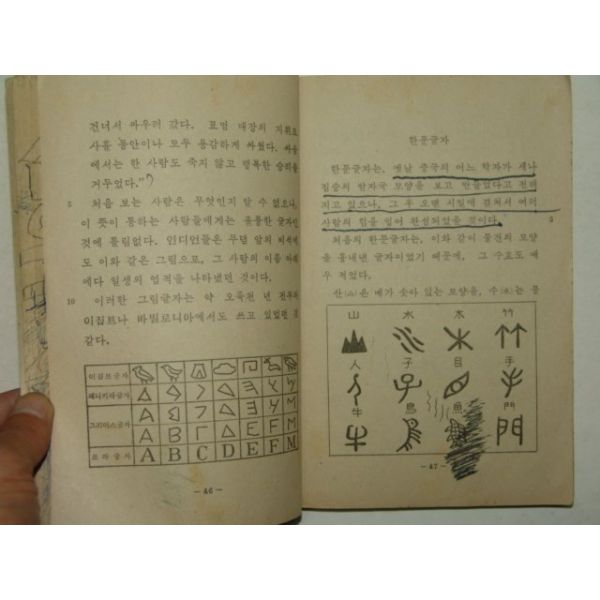 건너서 싸우러 갔다. 표범 대장의 지휘로
사흘 동안이나 모두 용감하게 싸웠다. 싸움
에서는 한 사람도 죽지 않고 행복한 승리를
거두었다."
5
처음 보는 사람은 무엇인지 알 수 없으나,
이 뜻이 통하는 사람들에게는 훌륭한 글자인
것에 틀림없다. 인디언들은 무덤 앞의 비석에
도 이와 같은 그림으로, 그 사람의 이름 아래
에다 일생의 업적을 나타냈던 것이다.
10
이러한 그림글자는 약 오륙천 년 전부터
이집트나 바빌로니아에서도 쓰고 있었던 것
같다.
이집트글자
페니키아글자
그리이스글자
로마글자 A B C D E F M
— 46 —
한문글자
한문글자는, 옛날 중국의 어느 학자가 새나
짐승의 발자국 모양을 보고 만들었다고 전해
지고 있으나, 그 후 오랜 시일에 걸쳐서 여러
사람의 힘을 입어 완성되었을 것이다.
5
처음의 한문글자는, 이와 같이 물건의 모양
을 흉내낸 글자이었기 때문에, 그 수효도 매
우 적었다.
산(山)은 메가 솟아 있는 모양을, 수(水)는 물
山 水 木 竹
人 子 目 手
牛 鳥 魚 門
— 47 —